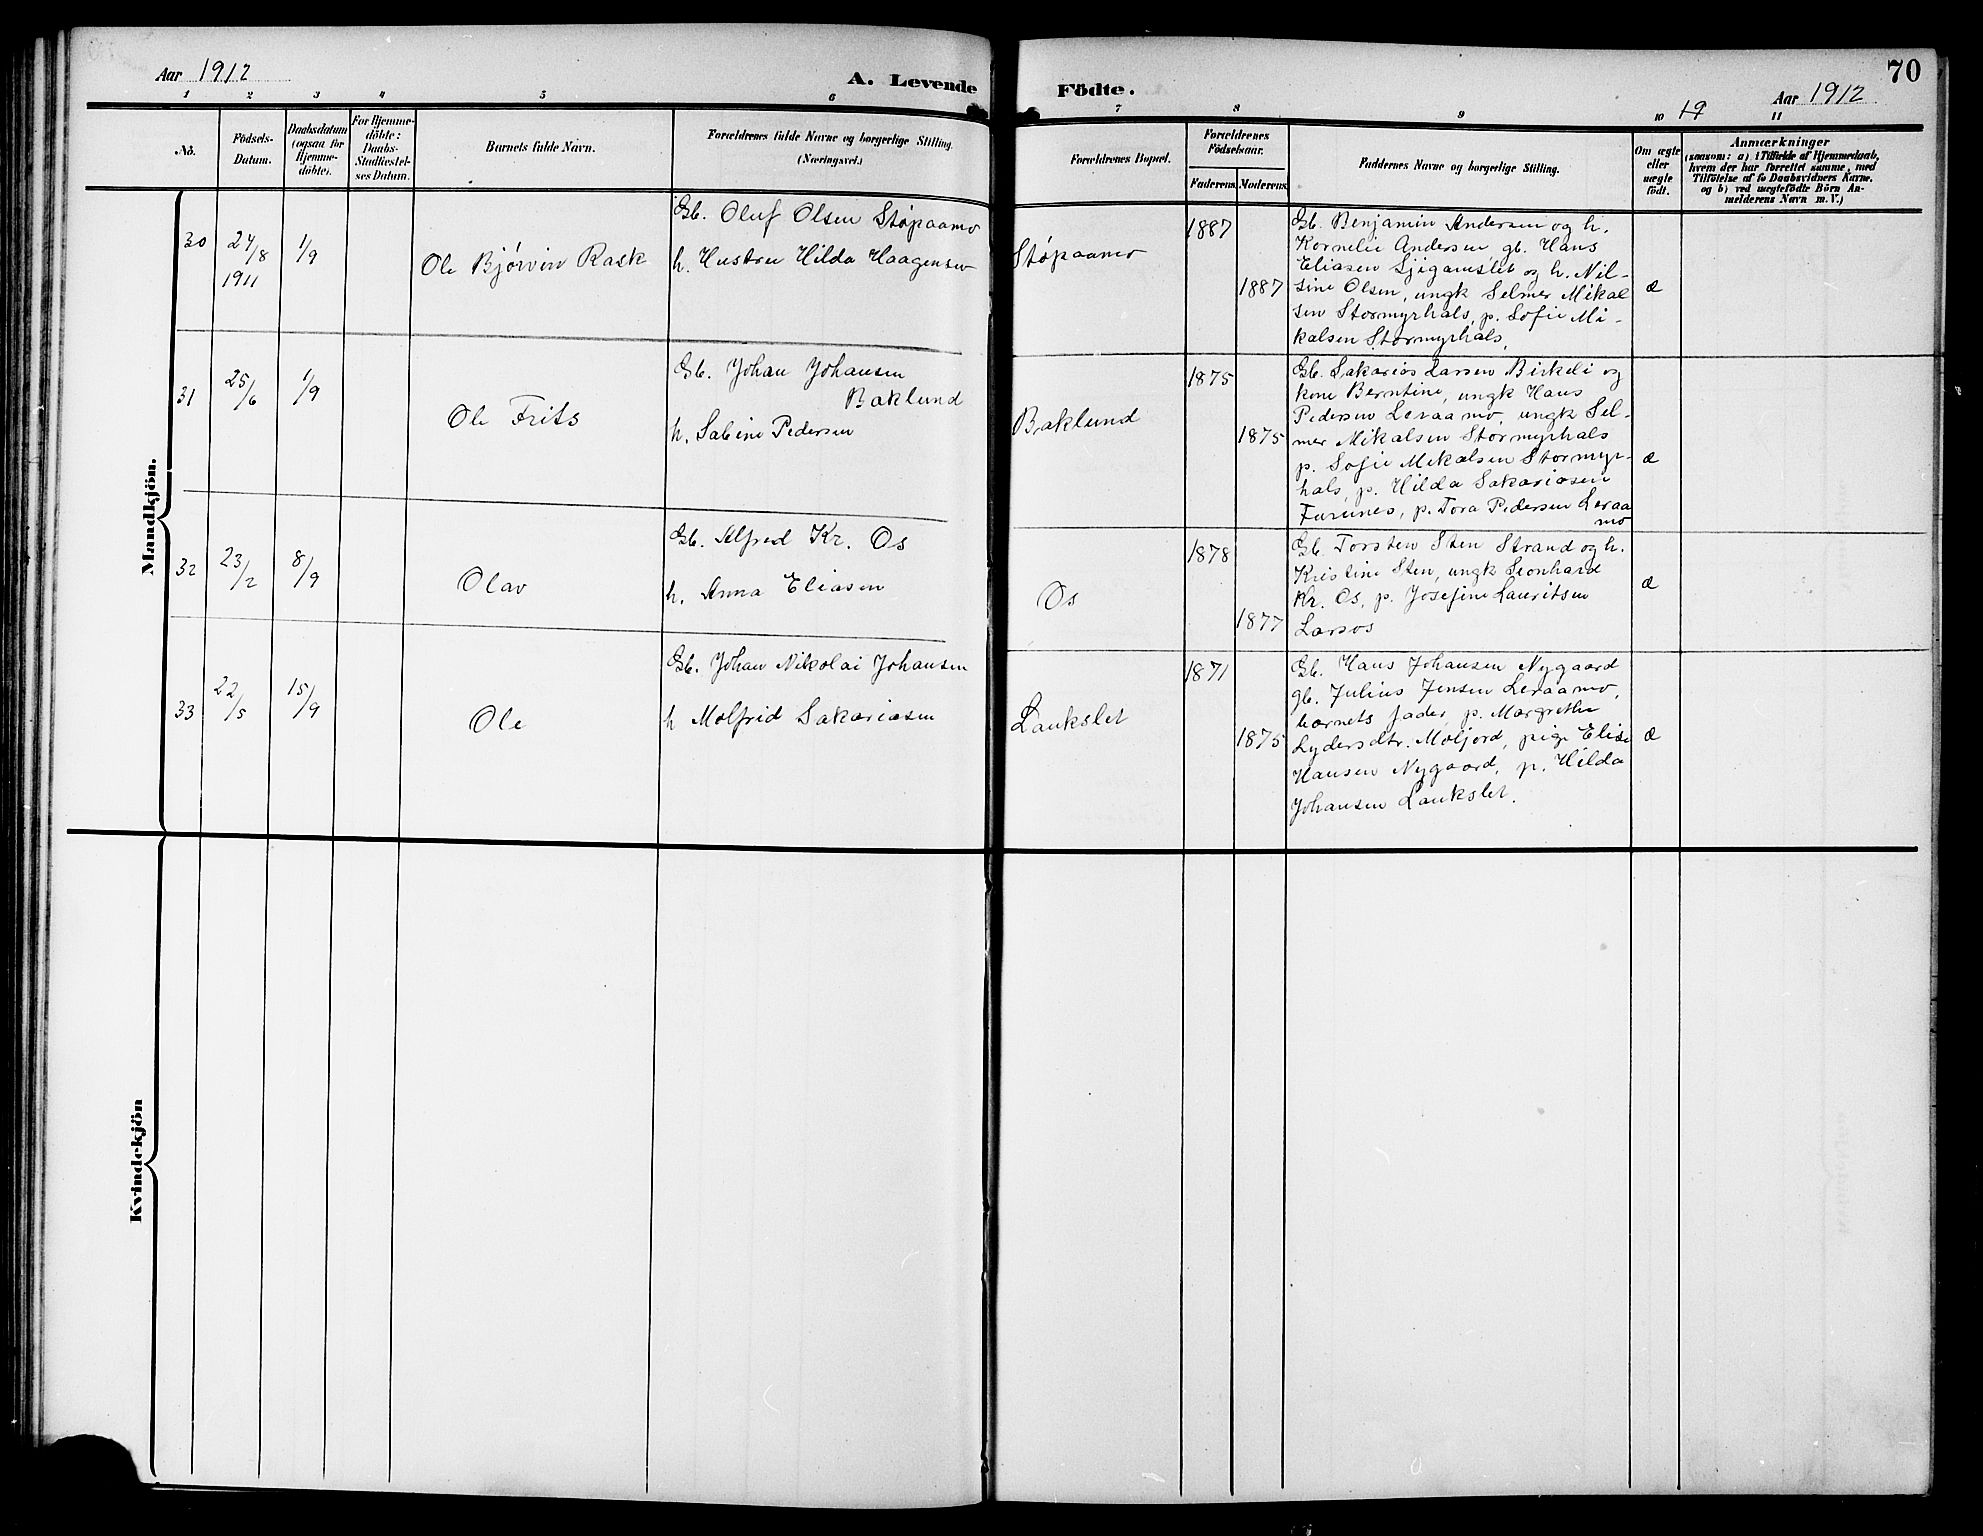 Aar 1912
A. Levende
Födte.
Aar 1912
70
19
1 2 3 4 5 6 7 8 9 10 11
No.
Födsels-
Datum.
Daabsdatum
(ogsaa for
Hjemme-
döbte).
For Hjemme-
döbte:
Daabs-
Stadfæstel-
ses Datum.
Barnets fulde Navn.
Forældrenes fulde Navne og borgerlige Stilling.
(Næringsvei.)
Forældrenes Bopæl.
Forældrenes
Födselsaar.
Faderens.
Moderens.
Faddernes Navne og borgerlige Stilling.
Om ægte
eller
uægte
födt.
Anmærkninger
(saasom: a) i Tilfælde af Hjemmedaab,
hvem der har forrettet samme, med
Tilföielse af to Daabsvidners Navne,
og b) ved uægtefödte Börn An-
melderens Navn m. V.)
Mandkjön.
30
24/8
1911
1/9
Ole Bjørvin Rask
Gb. Oluf Olsen Støpaamo
h. Hustru Hilda Haagensen
Støpaamo
1887
1887
Gb. Benjamin Andersen og h.
Kornelie Andersen, gb. Hans
Eliasen Sjigamslet og h. Nil-
sine Olsen, ungk Selmer Mikal
sen Stormyrhals, p. Sofie Mi-
kalsen Stormyrhals.
æ
31
25/6
1/9
Ole Frits
Gb. Johan Johansen
Baklund
h. Sabine Pedersen
Baklund
1875
1875
Gb. Sakarias Larsen Birkeli og
kone Berntine, ungk Hans
Pedersen Leraamo, ungk Sel-
mer Mikalsen Stormyrhals
p. Sofie Mikalsen Stormyr-
hals, p. Hilda Sakariasen
Furunes, p. Tora Pedersen Leraa
mo
æ
32
23/2
8/9
Olav
Gb. Alfred Kr. Os
h. Anna Eliasen
Os
1878
1877
Gb. Torsten Sten Strand og h.
Kristine Sten, ungk Leonhard
Kr. Os, p. Josefine Lauritsen
Larsos
æ
33
22/5
15/9
Ole
Gb. Johan Nikolai Johansen
h Molfrid Sakariasen
Laukslet
1871
1875
Gb. Hans Johansen Nygaard
gb. Julius Jensen Leraamo,
barnets fader, p. Margrethe
Lydersdtr. Moljord, pige Elise
Hansen Nygaard, p. Hilda
Johansen Laukslet.
æ
Kvindekjön